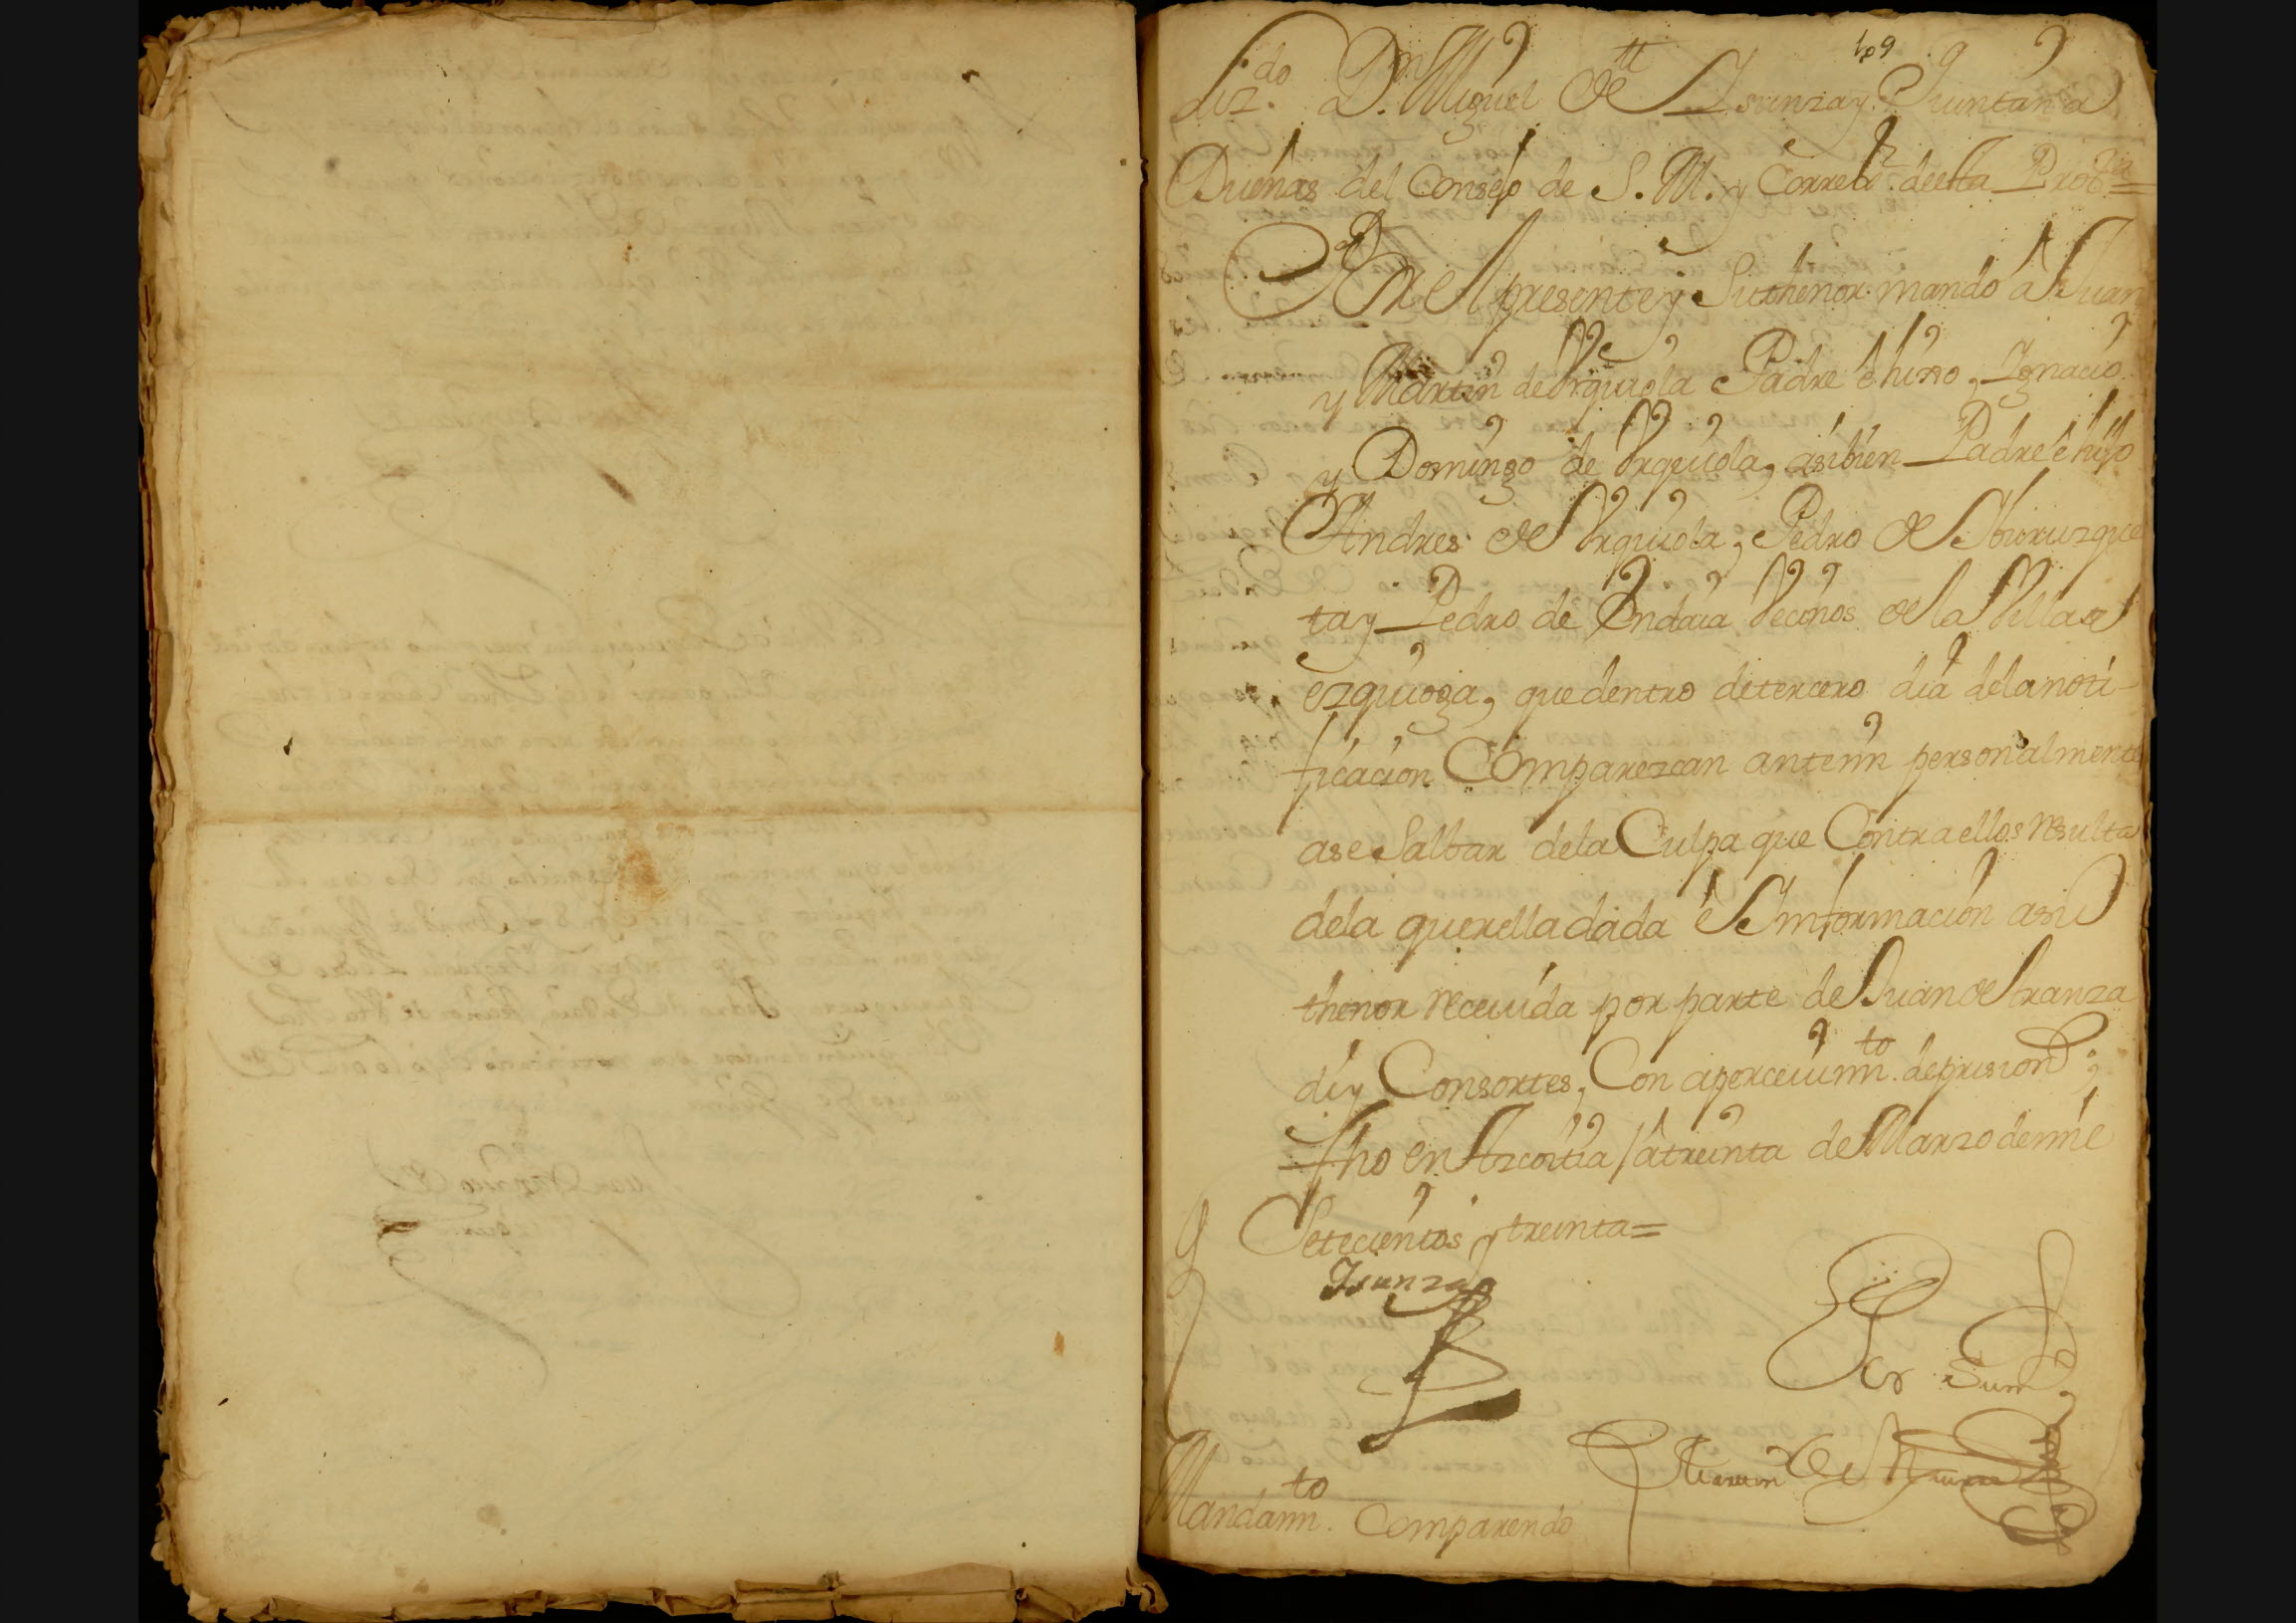 109 9
Liz.do D.n Miguel de Isunza y Quintana
Dueñas del Consejo de S. M. y Correg.r de esta Prob.ia =
Por el presente y Su thenor mando â Juan
y Martin de Vrquiola Padre è hijo, Ignacio
y Domingo de Vrquiola, asibien Padre è hijo
Andres de Vrquiola, Pedro de
ta y Pedro de Endaia Vecinos de la Villa de
ezquioga, que dentro de tercero dia dela noti-
ficacion Comparezcan antemi personalmente
ase Salbar dela Culpa que Contra ellos resulta
dela querella dada è Informacion asu
thenor receuida por parte de Juan de Aranza
di y Consortes, Con aperceuim.to de prision;
fho en Azcoitia â treinta de Marzo de mil
Setecientos y treinta =
Isunza
Por Su m.
de
Mandam.to Comparendo